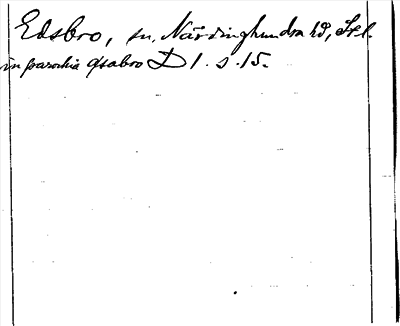 Edsbro, sn, Närdinghundra hd, Stl.
in parochia ysabro D 1. s. 15.